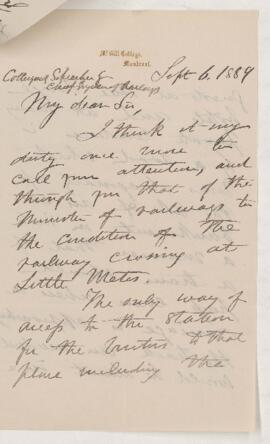 McGill College,
Montreal.
Sept 6. 1889
Collingwood Schreiber Esq
Chief Engineer of Railways
My dear Sir,
I think it my
duty once more to
call your attention, and
through you that of the
Minister of railways to
the condition of the
railway crossing at
Little Metis.
The only way of
access to the station
for the visitors to that
place including the